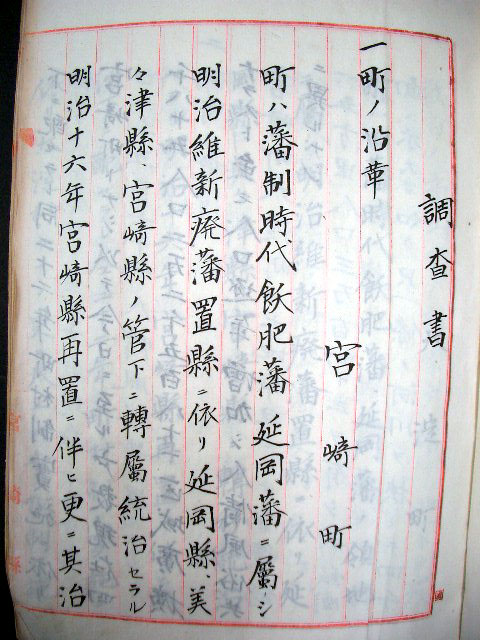 調査書
宮崎町
一町ノ沿革
町ハ藩制時代飫肥藩延岡藩ニ屬シ
明治維新廃藩置縣ニ依リ延岡縣、美
々津縣、宮崎縣ノ管下ニ轉屬統治セラル
明治十六年宮崎縣再置ニ伴ヒ更ニ其治